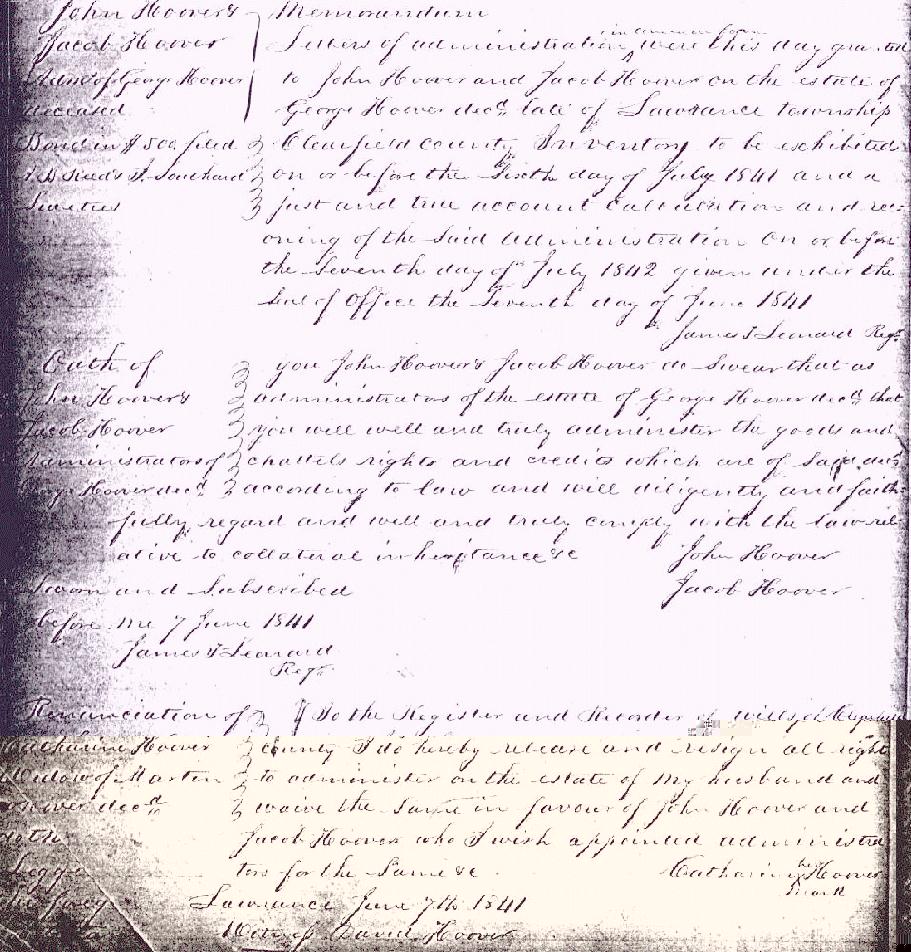 John Hoover &
Jacob Hoover
Adms of George Hoover
deceased
Bond in $500 filed
Sureties
Memorandum
in common form
Letters of administration were this day granted
to John Hoover and Jacob Hoover on the estate of
George Hoover decd late of Lawrance township
Clearfield county Inventory to be exhibited
on or before the Sixth day of July 1841 and a
just and true account calculation and reck-
oning of the said administration on or before
the Seventh day of July 1842 given under the
seal of Office the Seventh day of June 1841
James T Leonard Regr
Oath of
John Hoover &
Jacob Hoover
Administrators of
George Hoover decd
you John Hoover & Jacob Hoover do Swear that as
administrators of the estate of George Hoover decd that
you will well and truly administer the goods and
chattels rights and credits which are of said decd
according to law and will diligently and faith-
fully regard and well and truly comply with the law rel-
ative to collateral inheritance &c
John Hoover
Jacob Hoover
Sworn and Subscribed
before me 7 June 1841
James T Leonard
Regr
Renunciation of
Catharine Hoover
Widow of Martin
Hoover decd
To the Register and Recorder of wills of
County I do hereby release and resign all right
to administer on the estate of my husband and
waive the same in favour of John Hoover and
Jacob Hoover who I wish appointed administra
tors for the Same &c
Catharine her Hoover
mark
Lawrance June 7th 1841
Witness David Hoover